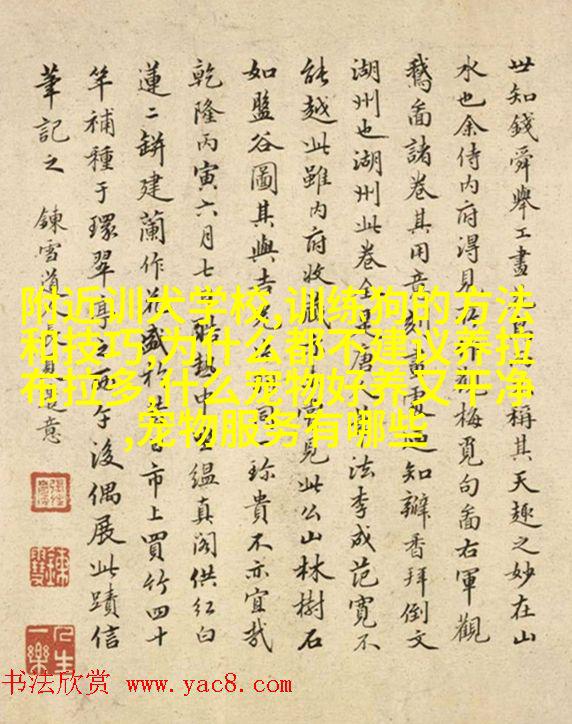 世知錢舜舉工畫稱其天趣之妙在山
水也余侍内府得見梅覓句畵右軍觀
鵞畵諸卷其用意刻畫知瓣香拜倒文
湖州也湖州此卷全是唐人法李成范寬不
能越此雖内府收藏見此公山林樹石
如盤谷圖其與吉珍貴不亦宜哉
乾隆丙寅六月七酷熱中緼真阁供红白
蓮二缾建蘭作花盛市上買竹四十
竿補種于環翠亭之西午後偶展此蹟信
筆記之 鍊雪道意
人生一樂
附近训犬学校,训练狗的方法
和技巧,为什么都不建议养拉
布拉多,什么宠物好养又干净
,宠物服务有哪些
书法欣赏 www.yac8.com